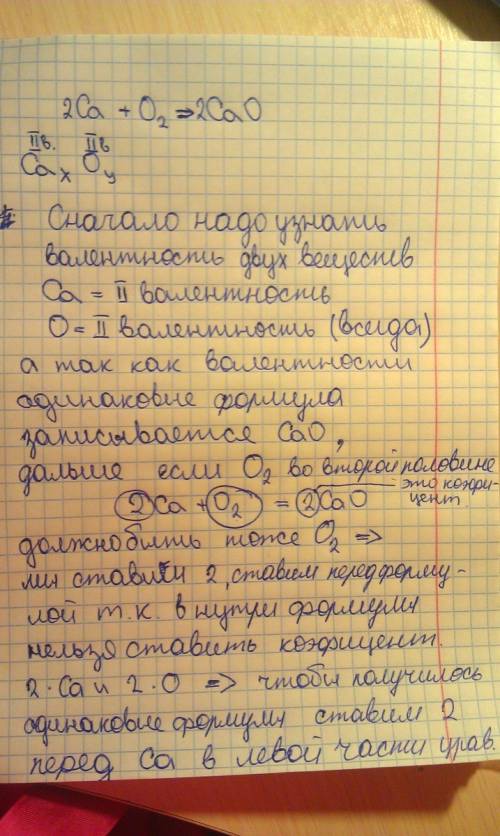 2Ca + O₂ ⇒ 2CaO
IIв. IIв
CaxOy
Сначало надо узнать
валентность двух веществ
Ca = II валентность
O = II валентность (всегда)
а так как валентности
одинаковые формула
записывается CaO,
дальше если O₂ во второй половине
это коэфи-
цент.
2Ca + O₂ = 2CaO
должно быть тоже O₂ ⇒
мы ставили 2, ставим перед форму-
лой т.к. внутри формулы
нельзя ставить коэфицент.
2·Ca и 2·O ⇒ чтобы получилось
одинаковые формулы ставим 2
перед Ca в левой части урав.